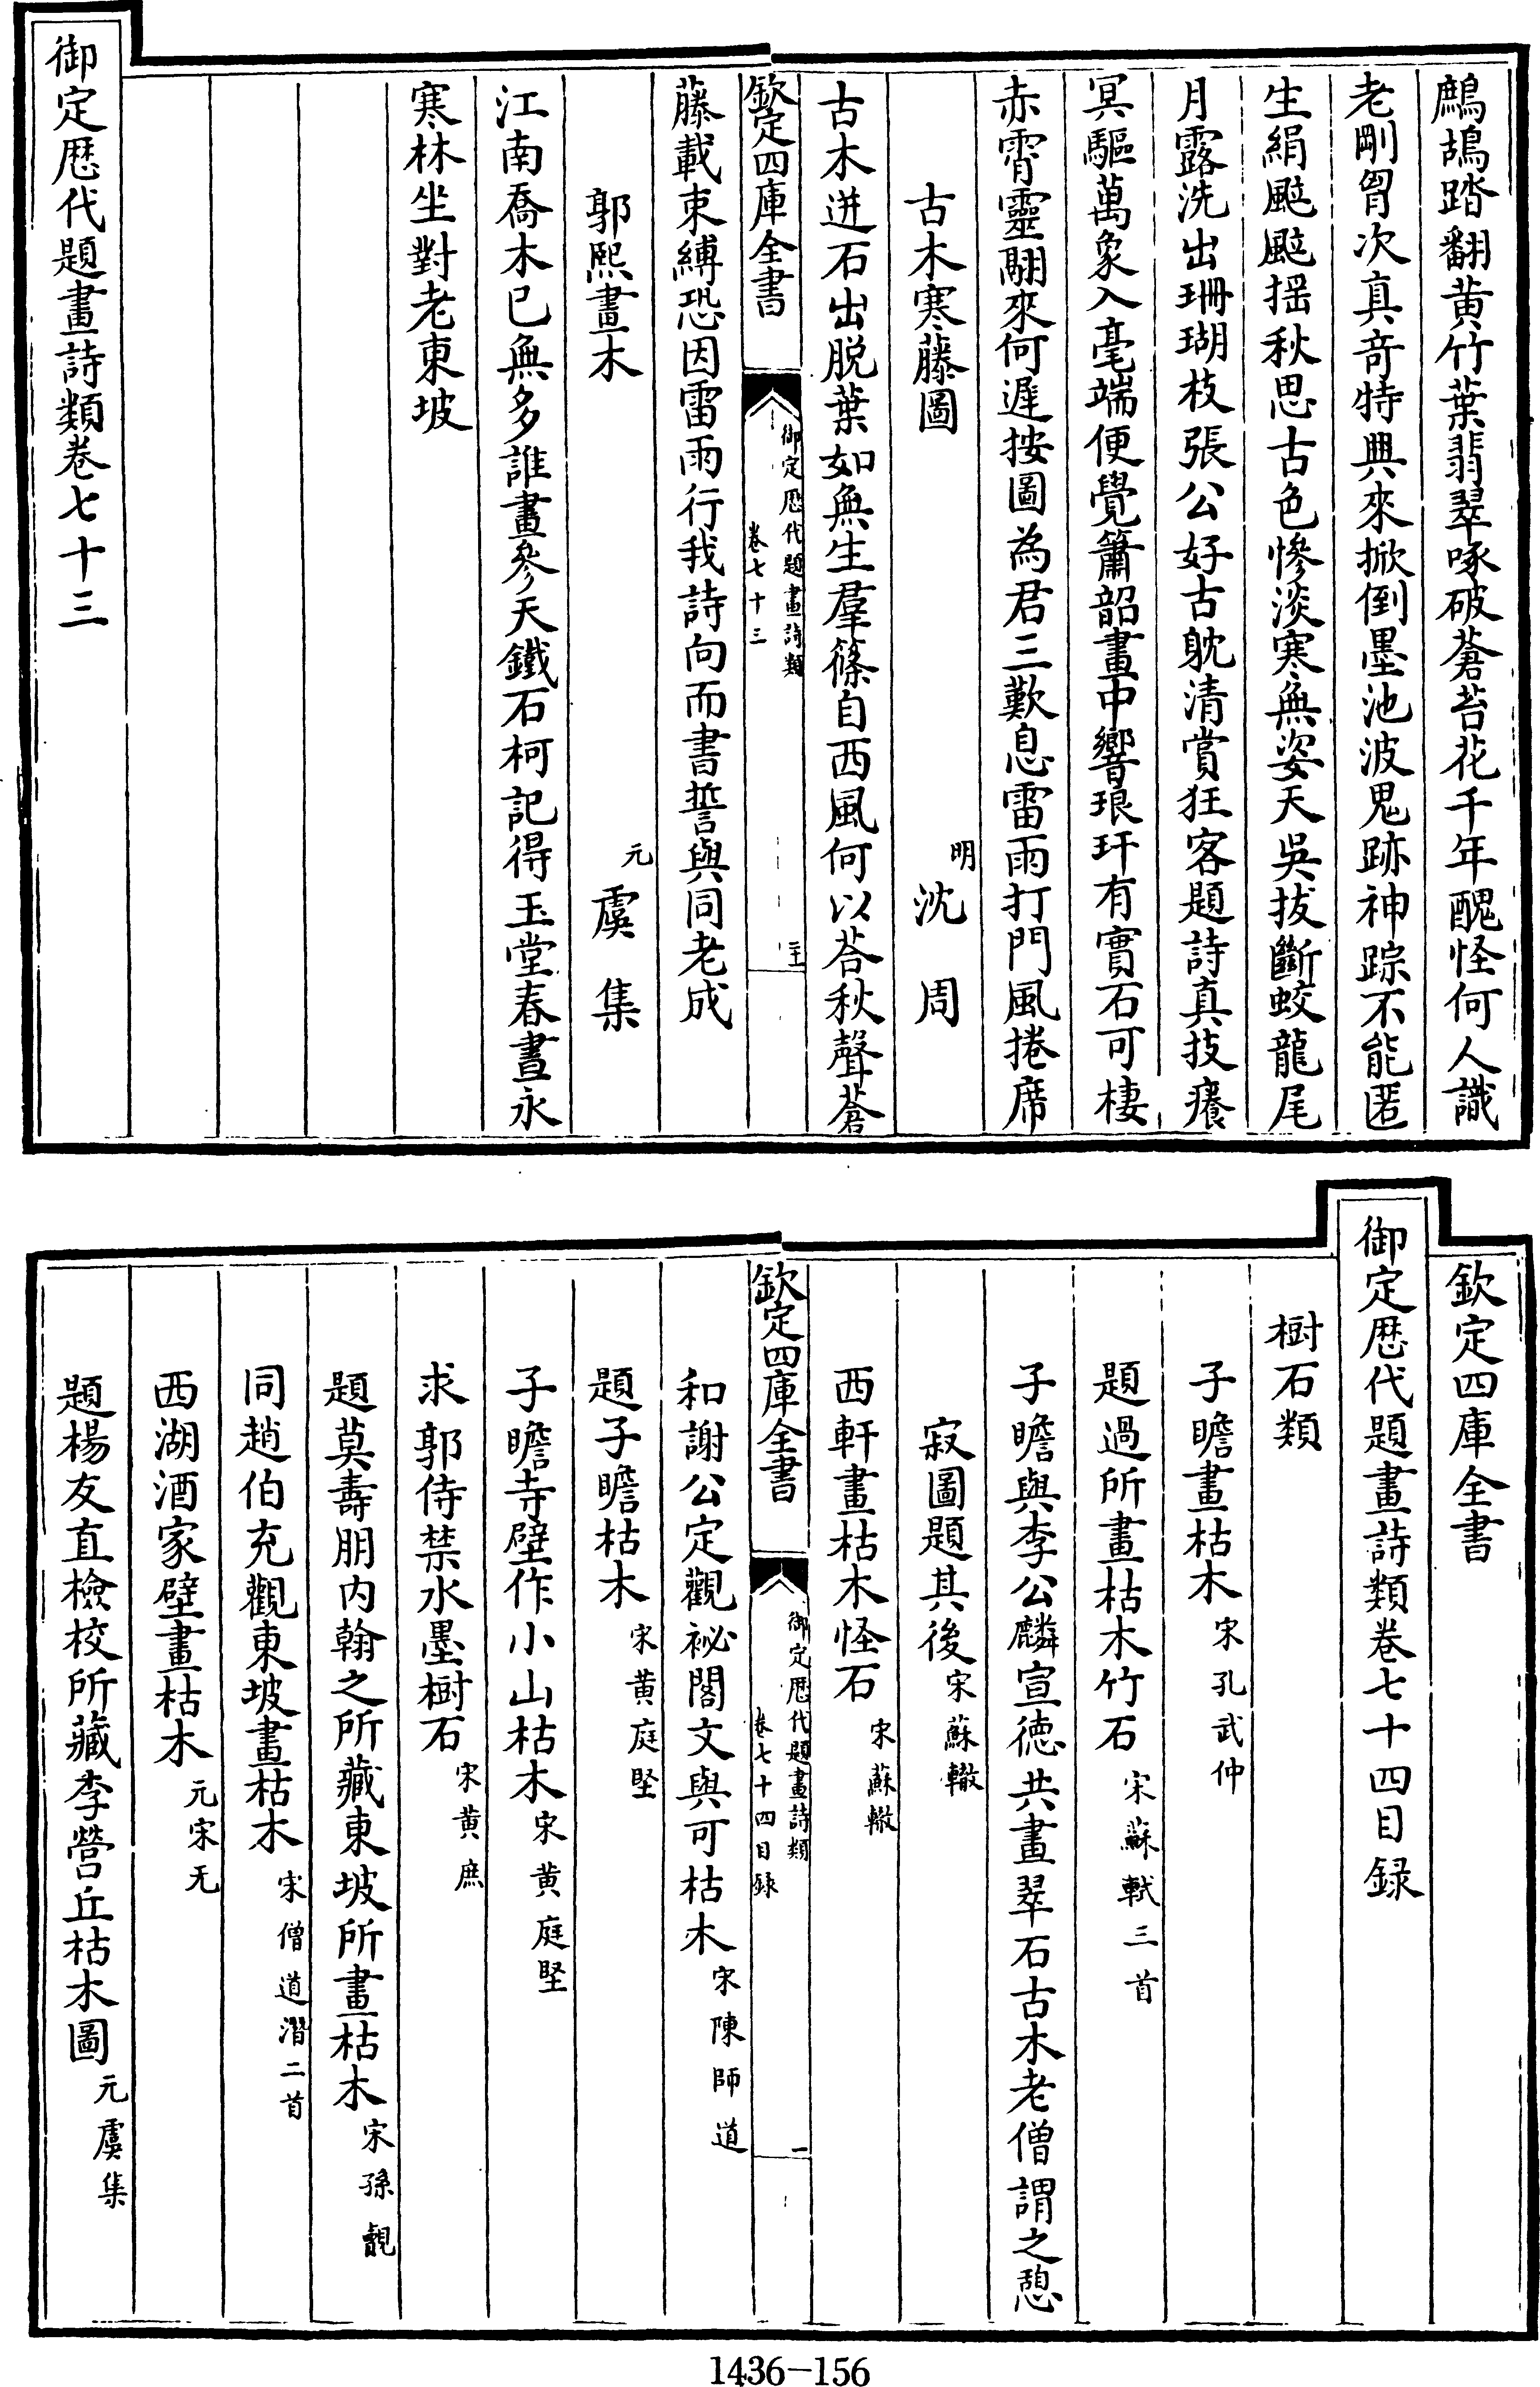 鷓鴣踏翻黄竹葉翡翠啄破蒼苔花千年醜怪何人識
老剛胷次真竒特興來掀倒墨池波鬼跡神踪不能匿
生絹颭颭揺秋思古色慘淡寒無姿天吳拔斷蛟龍尾
月露洗出珊瑚枝張公好古躭清賞狂客題詩真技癢
冥驅萬象入毫端便覺簫韶畫中響琅玕有實石可棲
赤霄靈翮來何遲按圖為君三歎息雷雨打門風捲席
古木寒藤圖　明沈周
古木迸石出脱葉如無生羣篠自西風何以荅秋聲蒼
欽定四庫全書
御定歴代題畫詩類
卷七十三
二十
藤載束縛恐因雷雨行我詩向而書誓與同老成
郭熙畫木　元虞集
江南喬木已無多誰畫參天鐵石柯記得玉堂春晝永
寒林坐對老東坡
御定歴代題畫詩類卷七十三
欽定四庫全書
御定歴代題畫詩類卷七十四目録
樹石類
子瞻畫枯木宋孔武仲
題過所畫枯木竹石宋蘇軾三首
子瞻與李公麟宣徳共畫翠石古木老僧謂之憩
寂圖題其後宋蘇轍
西軒畫枯木怪石宋蘇轍
欽定四庫全書
御定歴代題畫詩類
卷七十四目録
一
和謝公定觀祕閣文與可枯木宋陳師道
題子瞻枯木宋黄庭堅
子瞻寺壁作小山枯木宋黄庭堅
求郭侍禁水墨樹石宋黄庶
題莫壽朋内翰之所藏東坡所畫枯木宋孫覿
同趙伯充觀東坡畫枯木宋僧道潛二首
西湖酒家壁畫枯木元宋无
題楊友直檢校所藏李營丘枯木圖元虞集
1436-156